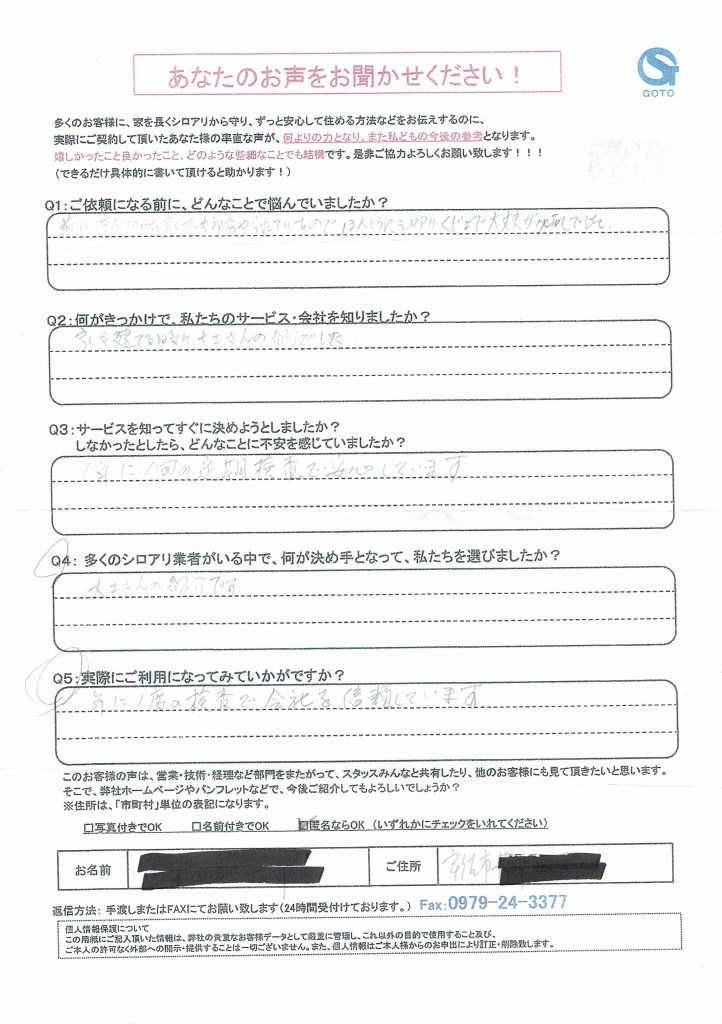 あなたのお声をお聞かせください！
GOTO
多くのお客様に、家を長くシロアリから守り、ずっと安心して住める方法などをお伝えするのに、
実際にご契約して頂いたあなた様の率直な声が、何よりの力となり、また私どもの今後の参考となります。
嬉しかったこと良かったこと、どのような些細なことでも結構です。是非ご協力よろしくお願い致します！！！
（できるだけ具体的に書いて頂けると助かります！）
Q1：ご依頼になる前に、どんなことで悩んでいましたか？
Q2：何がきっかけで、私たちのサービス・会社を知りましたか？
家を建てる時の大工さんの紹介でした
Q3：サービスを知ってすぐに決めようとしましたか？
しなかったとしたら、どんなことに不安を感じていましたか？
1年に1回の定期検査で安心しています
Q4：多くのシロアリ業者がいる中で、何が決め手となって、私たちを選びましたか？
大工さんの紹介です
Q5：実際にご利用になってみていかがですか？
年に1度の検査で会社を信頼しています
このお客様の声は、営業・技術・経理など部門をまたがって、スタッスみんなと共有したり、他のお客様にも見て頂きたいと思います。
そこで、弊社ホームページやパンフレットなどで、今後ご紹介してもよろしいでしょうか？
※住所は、「市町村」単位の表記になります。
□写真付きでOK □名前付きでOK ☑匿名ならOK （いずれかにチェックをいれてください）
お名前 ご住所 宇佐市
返信方法： 手渡しまたはFAXにてお願い致します（24時間受付ております。） Fax:0979-24-3377
個人情報保護について
この用紙にご記入頂いた情報は、弊社の貴重なお客様データとして厳重に管理し、これ以外の目的で使用すること及び、
ご本人の許可なく外部への開示・提供することは一切ございません。また、個人情報はご本人様からのお申出により訂正・削除致します。